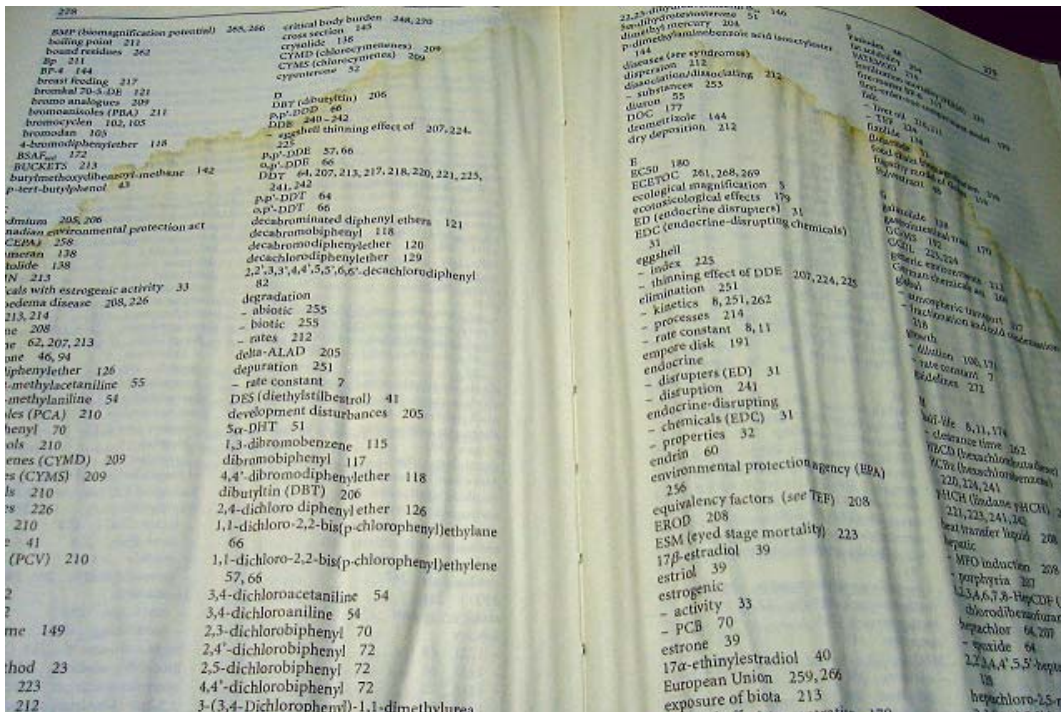 278
BMP (biomagnification potential) 265, 266
boiling point 211
bound residues 262
Bp 211
BP-4 144
breast feeding 217
bromkal 70-5-DE 121
bromo analogues 209
bromoanisoles (PBA) 211
bromocyclen 102, 105
bromodan 105
4-bromodiphenylether 118
BSAF 172
BUCKETS 213
butylmethoxydibenzoyl-methane 142
p-tert-butylphenol 43
admium 205, 206
nadian environmental protection act
CEPA) 258
meran 138
tolide 138
N 213
cals with estrogenic activity 33
oedema disease 208, 226
213, 214
ne 208
ne 62, 207, 213
one 46, 94
iphenylether 126
-methylacetaniline 55
-methylaniline 54
les (PCA) 210
henyl 70
ols 210
enes (CYMD) 209
es (CYMS) 209
ls 210
es 226
210
e 41
(PCV) 210
2
2
me 149
thod 23
223
212
critical body burden 248, 270
cross section 145
crysolide 138
CYMD (chlorocymenenes) 209
CYMS (chlorocymenes) 209
cyproterone 52
D
DBT (dibutyltin) 206
p,p'-DDD 66
DDE 240–242
– eggshell thinning effect of 207, 224,
225
p,p'-DDE 57, 66
o,p'-DDE 66
DDT 64, 207, 213, 217, 218, 220, 221, 225,
241, 242
p,p'-DDT 64
o,p'-DDT 66
decabrominated diphenyl ethers 121
decabromobiphenyl 118
decabromodiphenylether 120
decachlorodiphenylether 129
2,2',3,3',4,4',5,5',6,6'-decachlorodiphenyl
82
degradation
– abiotic 255
– biotic 255
– rates 212
delta-ALAD 205
depuration 251
– rate constant 7
DES (diethylstilbestrol) 41
development disturbances 205
5α-DHT 51
1,3-dibromobenzene 115
dibromobiphenyl 117
4,4'-dibromodiphenylether 118
dibutyltin (DBT) 206
2,4-dichloro diphenyl ether 126
1,1-dichloro-2,2-bis(p-chlorophenyl)ethylane
66
1,1-dichloro-2,2-bis(p-chlorophenyl)ethylene
57, 66
3,4-dichloroacetaniline 54
3,4-dichloroaniline 54
2,3-dichlorobiphenyl 70
2,4'-dichlorobiphenyl 72
2,5-dichlorobiphenyl 72
4,4'-dichlorobiphenyl 72
3-(3,4-Dichlorophenyl)-1,1-dimethylurea
146
5α-dihydrotestosterone 51
dimethyl mercury 204
p-dimethylaminobenzoic acid isooctylester
144
diseases (see syndromes)
dispersion 212
dissociation/dissociating 212
– substances 253
diuron 55
DOC 177
drometrizole 144
dry deposition 212
E
EC50 180
ECETOC 261, 268, 269
ecological magnification 5
ecotoxicological effects 179
ED (endocrine disrupters) 31
EDC (endocrine-disrupting chemicals)
31
eggshell
– index 225
– thinning effect of DDE 207, 224, 225
elimination 251
– kinetics 8, 251, 262
– processes 214
– rate constant 8, 11
empore disk 191
endocrine
– disrupters (ED) 31
– disruption 241
endocrine-disrupting
– chemicals (EDC) 31
– properties 32
endrin 60
environmental protection agency (EPA)
256
equivalency factors (see TEF) 208
EROD 208
ESM (eyed stage mortality) 223
17β-estradiol 39
estriol 39
estrogenic
– activity 33
– PCB 70
estrone 39
17α-ethinylestradiol 40
European Union 259, 266
exposure of biota 213
279
F
fish
– liver oil
G
galaxolide 138
gastrointestinal tract 170
GC/MS 192
generic environment 213
German chemicals act
global
– atmospheric transport
– fractionation and cold condensation
218
growth
– dilution 100, 171
– rate constant 7
guidelines 272
H
half-life 8, 11, 174
– clearance time 262
HCBD (hexachlorobutadiene)
HCBz (hexachlorobenzene)
220, 224, 241
γHCH (lindane γHCH)
221, 223, 241, 242
heat transfer liquid 208
hepatic
– MFO induction 208
– porphyria 207
1,2,3,4,6,7,8-HepCDF
chlorodibenzofuran
heptachlor 64, 207
– epoxide 64
2,2',3,4,4',5,5'-hepta
heptachloro-2,5-